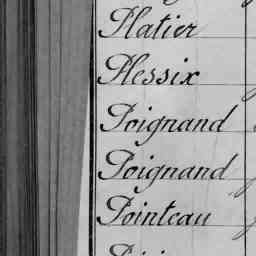 Platier
Plessix
Poignand
Poignand
Pointeau